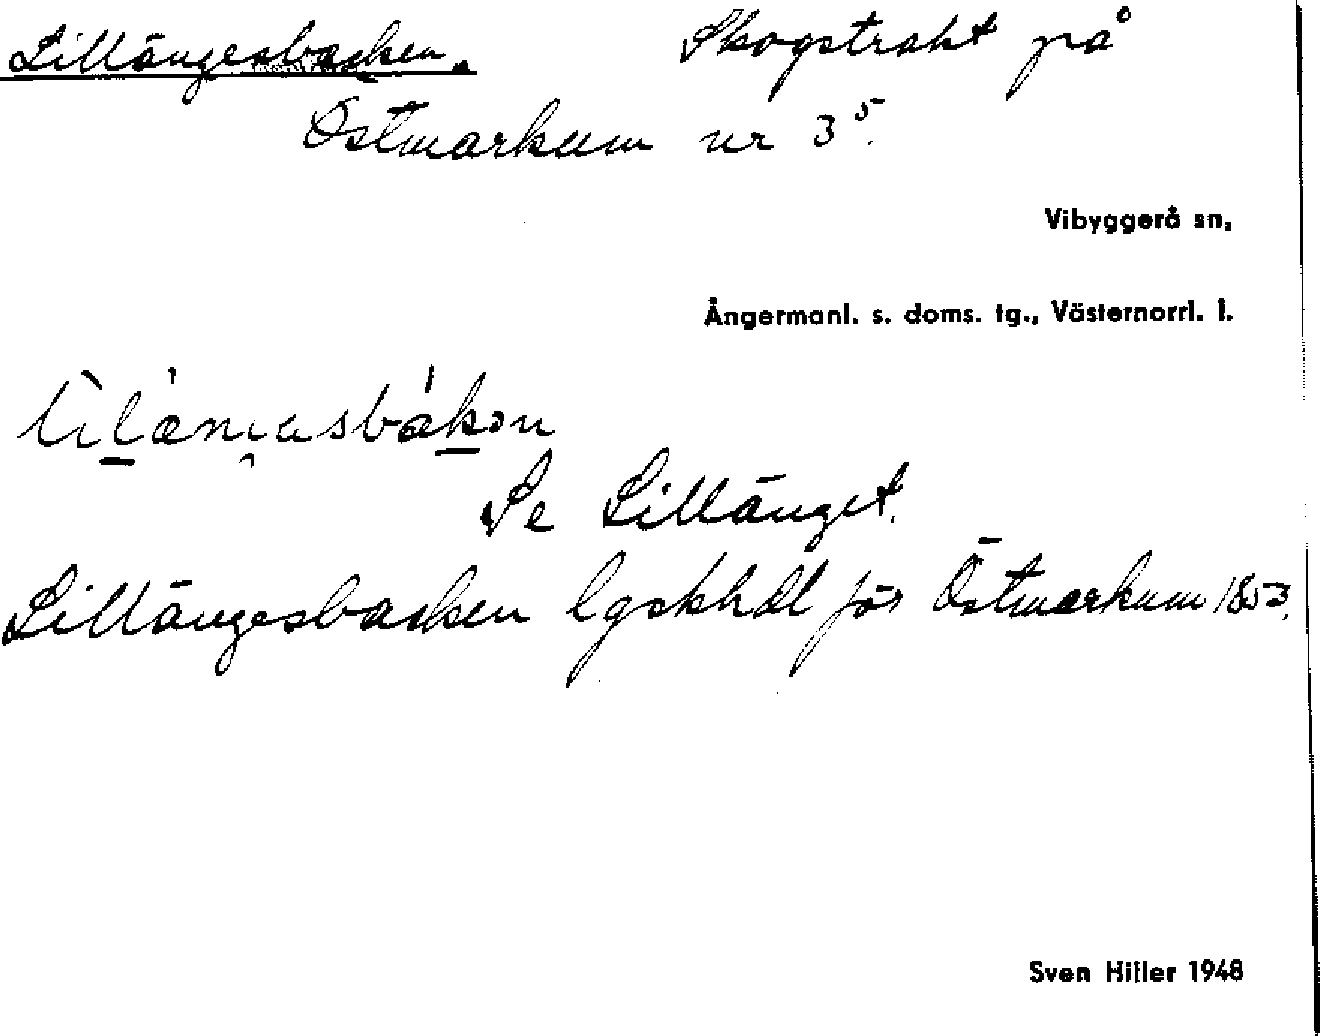 Lillängesbacken. Skogstrakt på
Östmarkum nr 3⁵.
Vibyggerå sn,
Ångermanl. s. doms. tg., Västernorrl. l.
Se Lillänget.
Lillängesbacken lgskhdl för Östmarkum 1853.
Sven Hiller 1948